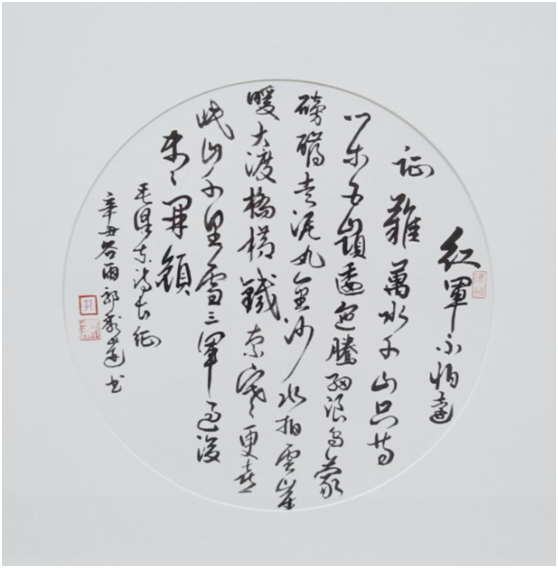 紅軍不怕遠
征難萬水千山只等
閑五嶺逶迤騰細浪烏蒙
磅礴走泥丸金沙水拍雲崖
暖大渡橋橫鐵索寒更喜
岷山千里雪三軍過後
盡開顏
毛澤東詩長征
辛丑谷雨郭蓮书